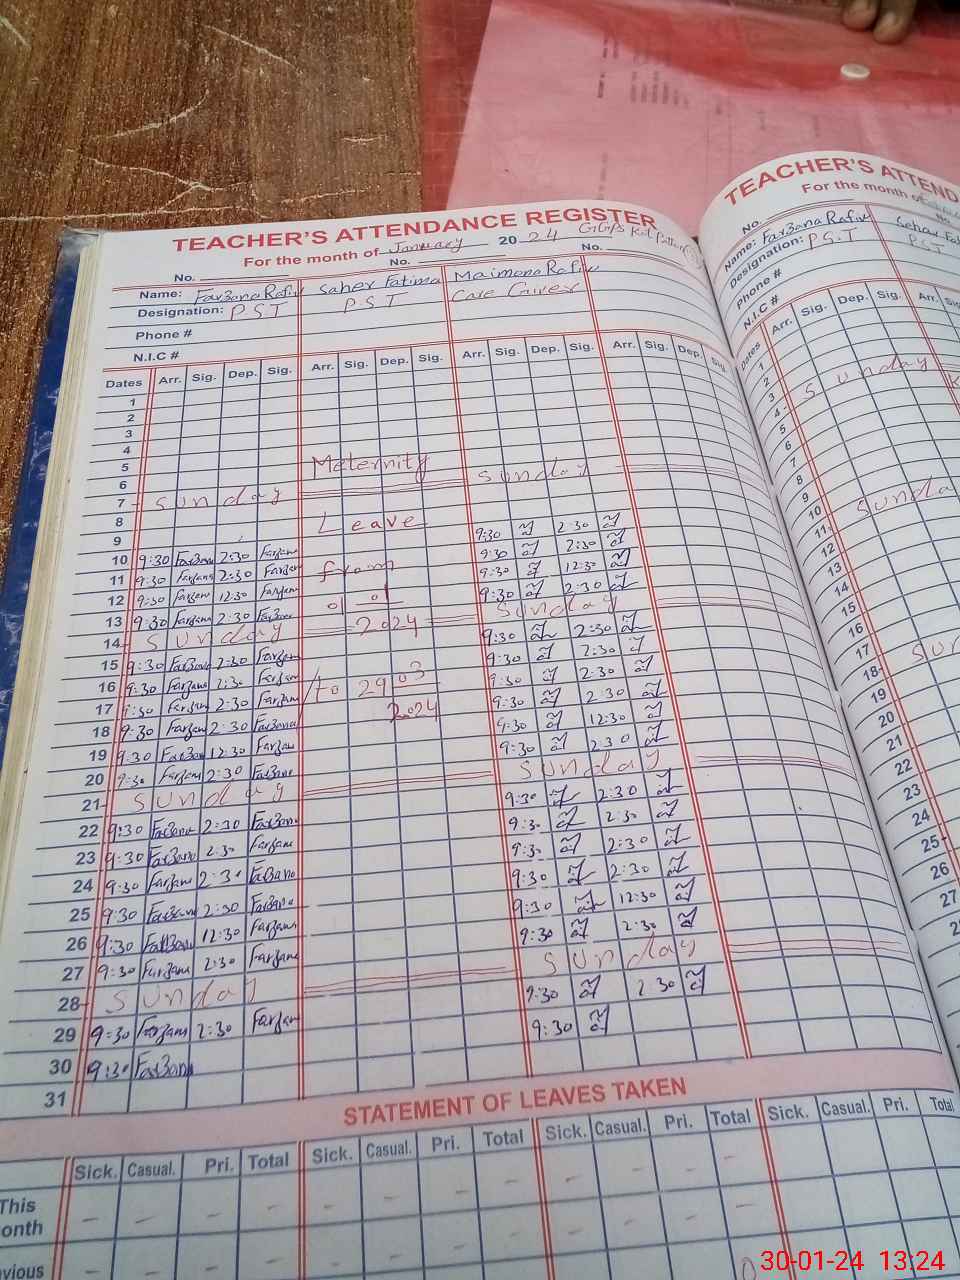 TEACHER'S ATTENDANCE REGISTER
For the month of January 2024
No. No. No.
Name: Farzana Rafiv Saher Fatima Maimona Rafiv
Designation: P S T P S T Care Giver
Phone #
N.I.C #
Dates Arr. Sig. Dep. Sig. Arr. Sig. Dep. Sig. Arr. Sig. Dep. Sig. Arr. Sig. Dep. Sig.
1
2
3
4
5 Meternity
6 Sunday
7 Sunday
8 Leave
9 9:30 2:30
10 9:30 Farzana 2:30 Farzana 9:30 2:30
11 9:30 Farzana 2:30 Farzana from 9:30 12:30
12 9:30 Farzana 12:30 Farzana 01 01 9:30 2:30
13 9:30 Farzana 2:30 Farzana 2024 Sunday
14 Sunday 9:30 2:30
15 9:30 Farzana 2:30 Farzana 9:30 2:30
16 9:30 Farzana 2:30 Farzana to 29 03 9:30 2:30
17 9:30 Farzana 2:30 Farzana 2024 9:30 2:30
18 9:30 Farzana 2:30 Farzana 9:30 12:30
19 9:30 Farzana 12:30 Farzana 9:30 2:30
20 9:30 Farzana 2:30 Farzana Sunday
21 Sunday 9:30 2:30
22 9:30 Farzana 2:30 Farzana 9:30 2:30
23 9:30 Farzana 2:30 Farzana 9:30 2:30
24 9:30 Farzana 2:30 Farzana 9:30 2:30
25 9:30 Farzana 2:30 Farzana 9:30 12:30
26 9:30 Farzana 12:30 Farzana 9:30 2:30
27 9:30 Farzana 2:30 Farzana Sunday
28 Sunday 9:30 2:30
29 9:30 Farzana 2:30 Farzana 9:30
30 9:30 Farzana
31
STATEMENT OF LEAVES TAKEN
Sick. Casual. Pri. Total Sick. Casual. Pri. Total Sick. Casual. Pri. Total Sick. Casual. Pri. Total
This
onth
vious
TEACHER'S ATTEND
For the month of
No.
Name: Farzana Rafiv Sehar
Designation: P.S.T P S T
Phone #
N.I.C #
Dates Arr. Sig. Dep. Sig. Arr.
1
2
3
4 Sunday
5
6
7
8
9
10
11 Sunda
12
13
14
15
16
17
18 Sun
19
20
21
22
23
24
25
26
27
30-01-24 13:24